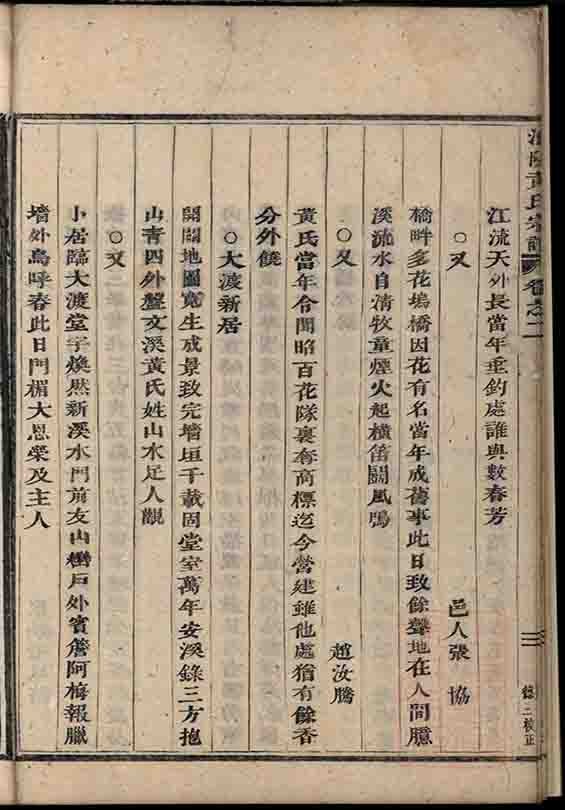 黃氏宗譜 卷之二
三
錄三校正
江流天外長當年垂釣處誰與數春芳
○又
邑人張 協
橋畔多花塢橋因花有名當年成舊事此日致餘聲地在人間臆
溪流水自清牧童煙火起橫笛鬭風鴞
○又
趙汝騰
黃氏當年令聞昭百花隊裏奪高標迄今營建雖他處猶有餘香
分外饒
○大渡新居
開闢地圖寬生成景致完墻垣千載固堂室萬年安溪錄三方抱
山青四外盤文溪黃氏姓山水足人觀
○又
小居臨大渡堂宇煥然新溪水門前友山巒戶外賓簷阿梅報臘
墻外鳥呼春此日門楣大恩榮及主人